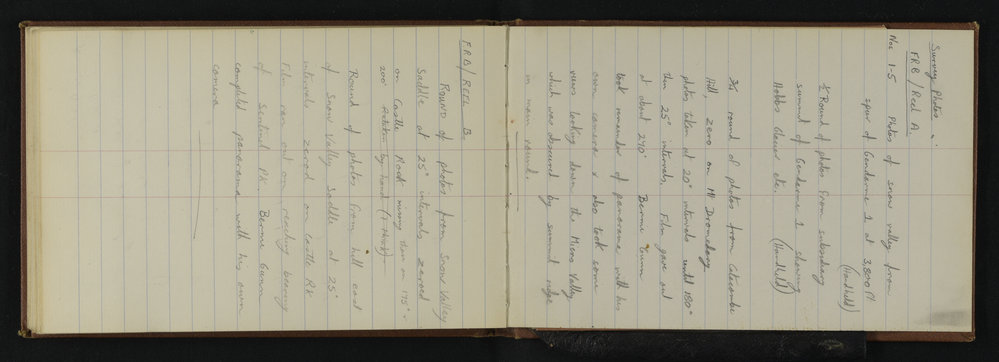 Survey Photos.
FRB/Reel A.
Nos 1-5 Photos of snow valley from
spur of Gendarme 1 at 3,800 ft
(Handheld)
½ Round of photos from subsidiary
summit of Gendarme 1 showing
Hobbs Glacier etc. (Handheld)
¾ round of photos from Catacombs
Hill, zero on Mt Dromedary
photos taken at 20° intervals until 180°
then 25° intervals, Film gave out
at about 270° Bernie Gunn
took remainder of panorama with his
own camera & also took some
views looking down the Miers Valley
which was obscured by summit ridge
in main round.
FRB/REEL B.
ROUND of photos from Snow Valley
Saddle at 25° intervals zeroed
on Castle Rock missing then on 175° &
200° by hand
Round of photos from hill east
of Snow Valley Saddle at 25°
intervals zeroed on Castle Rk
Film ran out on reaching bearing
of Sentinel Pk. Bernie Gunn
completed panorama with his own
camera